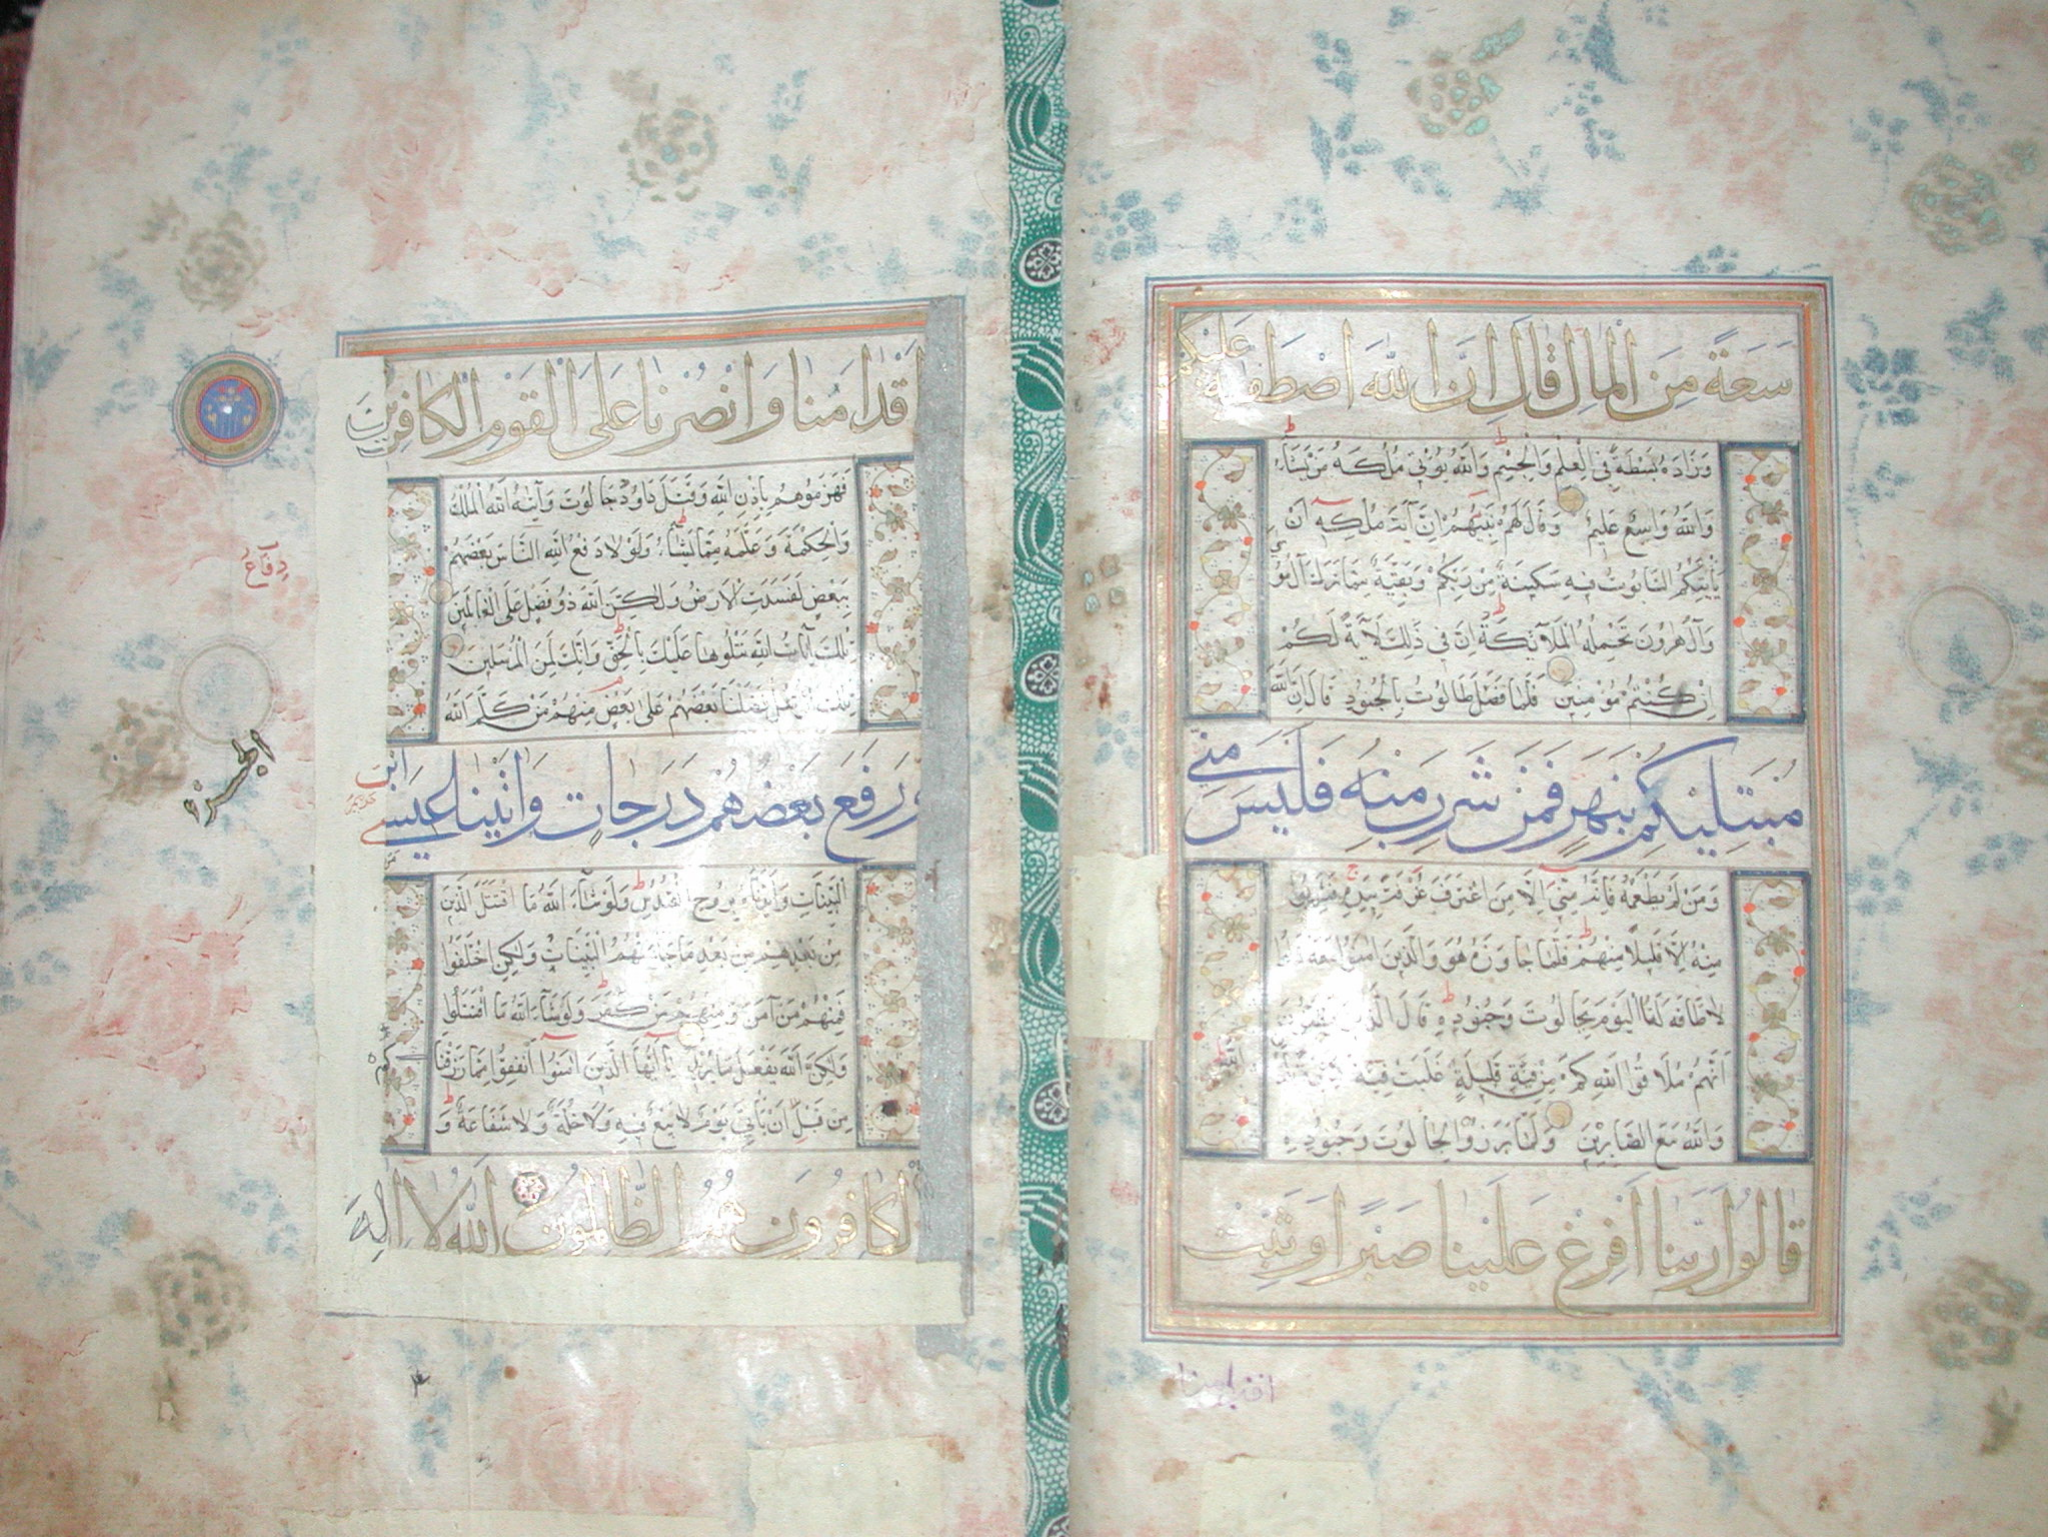 سَعَةً مِنَ الْمَالِ قَالَ اِنَّ اللهَ اصْطَفٰيهُ عَلَيْكُمْ
وَزَادَهُ بَسْطَةً فِي الْعِلْمِ وَالْجِسْمِ وَاللهُ يُؤْتِي مُلْكَهُ مَنْ يَشَاءُ
وَاللهُ وَاسِعٌ عَلِيمٌ وَقَالَ لَهُمْ نَبِيُّهُمْ اِنَّ آيَةَ مُلْكِهِ اَنْ
يَأْتِيَكُمُ التَّابُوتُ فِيهِ سَكِينَةٌ مِنْ رَبِّكُمْ وَبَقِيَّةٌ مِمَّا تَرَكَ آلُ مُو
وَآلُ هٰرُونَ تَحْمِلُهُ الْمَلَآئِكَةُ اِنَّ فِي ذٰلِكَ لَآيَةً لَكُمْ
اِنْ كُنْتُمْ مُؤْمِنِينَ فَلَمَّا فَصَلَ طَالُوتُ بِالْجُنُودِ قَالَ اِنَّ اللهَ
مُبْتَلِيكُمْ بِنَهَرٍ فَمَنْ شَرِبَ مِنْهُ فَلَيْسَ مِنِّي
وَمَنْ لَمْ يَطْعَمْهُ فَاِنَّهُ مِنِّي اِلَّا مَنِ اغْتَرَفَ غُرْفَةً بِيَدِهِ فَشَرِبُوا
مِنْهُ اِلَّا قَلِيلًا مِنْهُمْ فَلَمَّا جَاوَزَهُ هُوَ وَالَّذِينَ اٰمَنُوا مَعَهُ قَالُوا
لَا طَاقَةَ لَنَا الْيَوْمَ بِجَالُوتَ وَجُنُودِهِ قَالَ
اَنَّهُمْ مُلَاقُوا اللهِ كَمْ مِنْ فِئَةٍ قَلِيلَةٍ غَلَبَتْ فِئَةً
وَاللهُ مَعَ الصَّابِرِينَ وَلَمَّا بَرَزُوا لِجَالُوتَ وَجُنُودِهِ
قَالُوا رَبَّنَا اَفْرِغْ عَلَيْنَا صَبْرًا وَثَبِّتْ
اقدامنا
اَقْدَامَنَا وَانْصُرْنَا عَلَى الْقَوْمِ الْكَافِرِينَ
فَهَزَمُوهُمْ بِاِذْنِ اللهِ وَقَتَلَ دَاوُدُ جَالُوتَ وَآتٰيهُ اللهُ الْمُلْكَ
وَالْحِكْمَةَ وَعَلَّمَهُ مِمَّا يَشَاءُ وَلَوْلَا دَفْعُ اللهِ النَّاسَ بَعْضَهُمْ
دِفَاعُ
بِبَعْضٍ لَفَسَدَتِ الْاَرْضُ وَلٰكِنَّ اللهَ ذُو فَضْلٍ عَلَى الْعَالَمِينَ
تِلْكَ آيَاتُ اللهِ نَتْلُوهَا عَلَيْكَ بِالْحَقِّ وَاِنَّكَ لَمِنَ الْمُرْسَلِينَ
تِلْكَ الرُّسُلُ فَضَّلْنَا بَعْضَهُمْ عَلٰى بَعْضٍ مِنْهُمْ مَنْ كَلَّمَ اللهُ
الجزء
وَرَفَعَ بَعْضَهُمْ دَرَجَاتٍ وَاٰتَيْنَا عِيسَى ابْنَ
الْبَيِّنَاتِ وَاَيَّدْنَاهُ بِرُوحِ الْقُدُسِ وَلَوْ شَاءَ اللهُ مَا اقْتَتَلَ الَّذِينَ
مِنْ بَعْدِهِمْ مِنْ بَعْدِ مَا جَاءَتْهُمُ الْبَيِّنَاتُ وَلٰكِنِ اخْتَلَفُوا
فَمِنْهُمْ مَنْ آمَنَ وَمِنْهُمْ مَنْ كَفَرَ وَلَوْ شَاءَ اللهُ مَا اقْتَتَلُوا
وَلٰكِنَّ اللهَ يَفْعَلُ مَا يُرِيدُ يَا اَيُّهَا الَّذِينَ اٰمَنُوا اَنْفِقُوا مِمَّا رَزَقْنَاكُمْ
مِنْ قَبْلِ اَنْ يَأْتِيَ يَوْمٌ لَا بَيْعٌ فِيهِ وَلَا خُلَّةٌ وَلَا شَفَاعَةٌ وَ
الْكَافِرُونَ هُمُ الظَّالِمُونَ اللهُ لَا اِلٰهَ